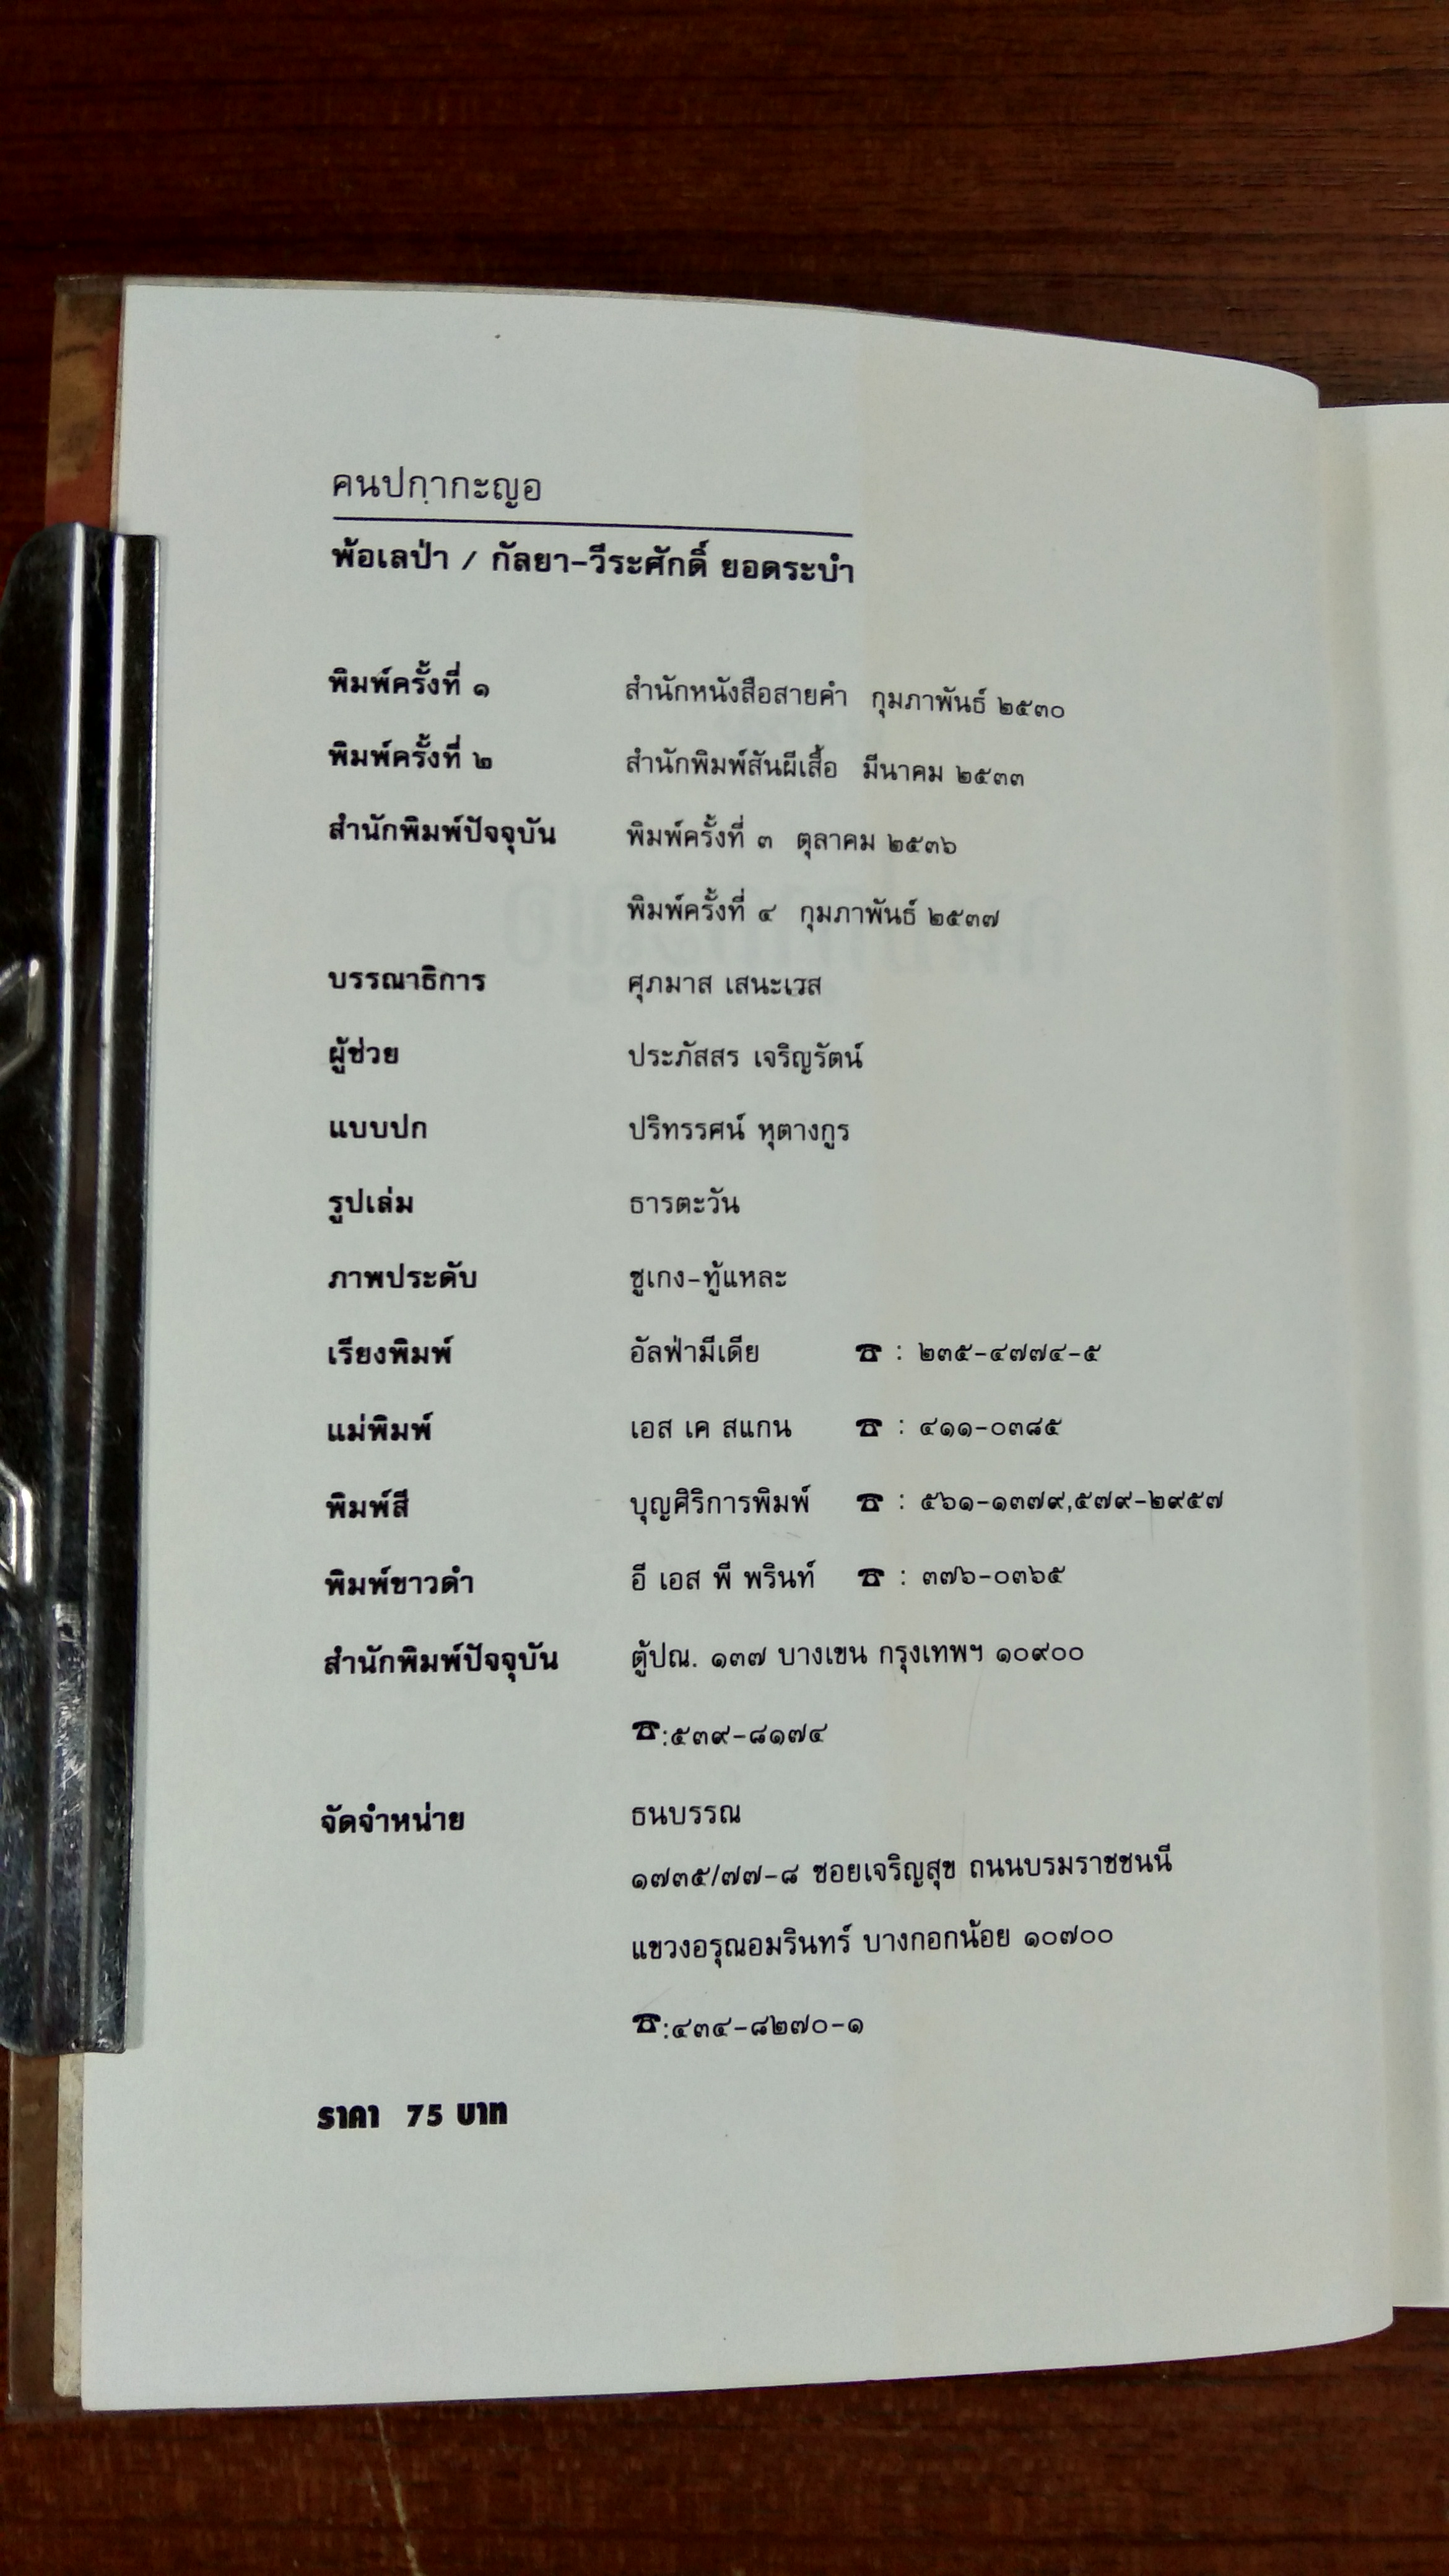 คนปกฺากะญอ
พ้อเลป่า / กัลยา-วีระศักดิ์ ยอดระบำ
พิมพ์ครั้งที่ ๑ สำนักหนังสือสายคำ กุมภาพันธ์ ๒๕๓๐
พิมพ์ครั้งที่ ๒ สำนักพิมพ์สันผีเสื้อ มีนาคม ๒๕๓๓
สำนักพิมพ์ปัจจุบัน พิมพ์ครั้งที่ ๓ ตุลาคม ๒๕๓๖
พิมพ์ครั้งที่ ๔ กุมภาพันธ์ ๒๕๓๗
บรรณาธิการ ศุภมาส เสนะเวส
ผู้ช่วย ประภัสสร เจริญรัตน์
แบบปก ปริทรรศน์ หุตางกูร
รูปเล่ม ธารตะวัน
ภาพประดับ ชูเกง-ทู้แหละ
เรียงพิมพ์ อัลฟ่ามีเดีย ☎ : ๒๓๕-๔๗๗๔-๕
แม่พิมพ์ เอส เค สแกน ☎ : ๔๑๑-๐๓๘๕
พิมพ์สี บุญศิริการพิมพ์ ☎ : ๕๖๑-๑๓๗๙,๕๗๙-๒๙๕๗
พิมพ์ขาวดำ อี เอส พี พรินท์ ☎ : ๓๗๖-๐๓๖๕
สำนักพิมพ์ปัจจุบัน ตู้ปณ. ๑๓๗ บางเขน กรุงเทพฯ ๑๐๙๐๐
☎:๕๓๙-๘๑๗๔
จัดจำหน่าย ธนบรรณ
๑๗๓๕/๗๗-๘ ซอยเจริญสุข ถนนบรมราชชนนี
แขวงอรุณอมรินทร์ บางกอกน้อย ๑๐๗๐๐
☎:๔๓๔-๘๒๗๐-๑
ราคา 75 บาท